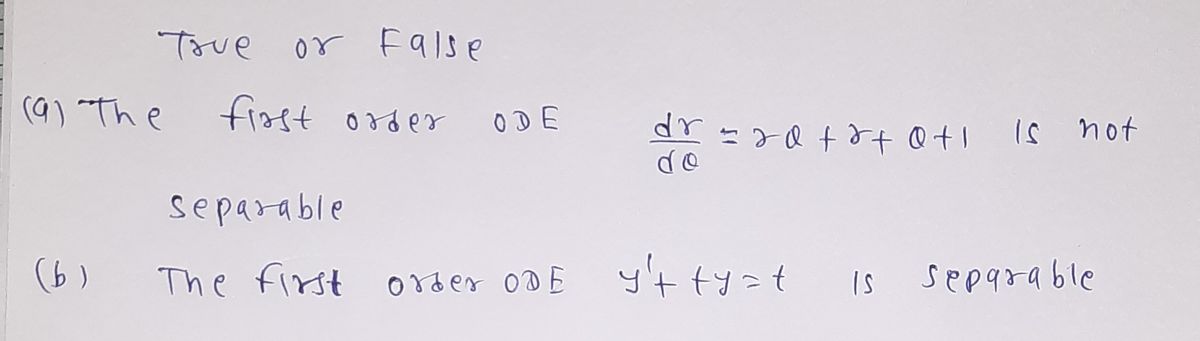 True or False
(a) The first order ODE dr/dθ = rθ + r + θ + 1 is not
separable
(b) The first order ODE y' + ty = t is separable